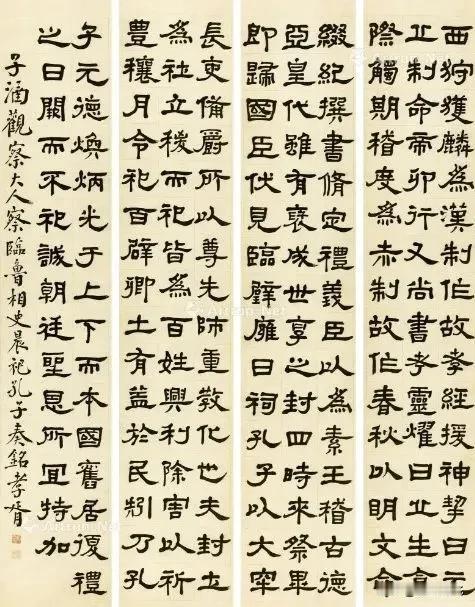 西狩獲麟為漢制作故孝經援神挈曰玄
丘制命帝卯行又尚書考靈燿曰丘生倉
際觸期稽度為赤制故作春秋以明文命
綴紀撰書脩定禮義臣以為素王稽古德
亞皇代雖有褒成世享之封四時來祭畢
即歸國臣伏見臨璧廱日祠孔子以大宰
長吏備爵所以尊先師重教化也夫封土
為社立稷而祀皆為百姓興利除害以祈
豐穰月令祀百辟卿土有益於民矧乃孔
子元德煥炳光于上下而本國舊居復禮
之日闕而不祀誠朝廷聖恩所宜特加
子涵觀察大人察臨魯相史晨祀孔子奏銘孝胥